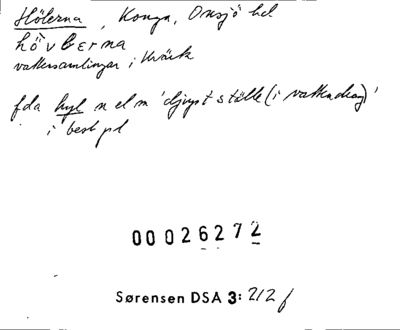 Hölerna, Konga, Onsjö hd
hövlerna
vattensamlingar i kvärk
fda hyl n el m 'djupt ställe (i vattendrag)'
i best pl
00026272
Sørensen DSA 3: 212 f